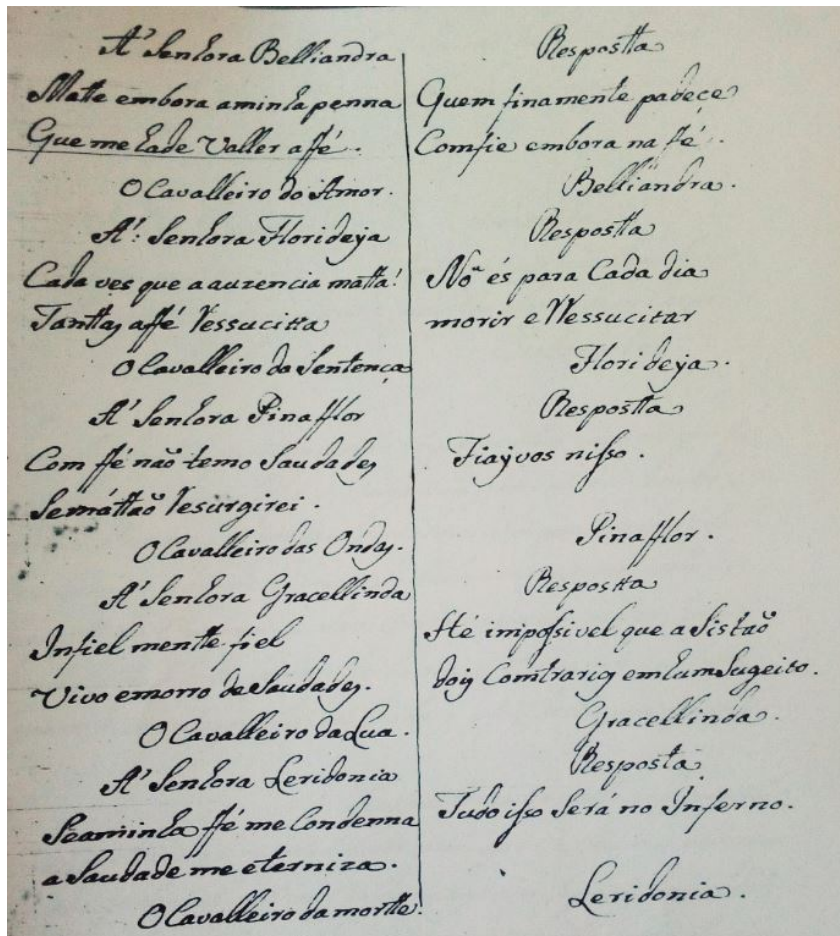 A' Senhora Belliandra
Matte embora a minha penna
Que me hade Valler affé.
O Cavalleiro do Amor.
A': Senhora Florideya
Cada ves que a auzencia matta!
Tanttas affé Ressucitta
O Cavalleiro da Sentença
A' Senhora Pinafflor
Com ffé não temo Saudades
Se mattaõ Resurgirei.
O Cavalleiro das Ondas.
A' Senhora Gracellinda
Infiel mentte fiel
Vivo e morro de Saudades.
O Cavalleiro da Lua.
A' Senhora Leridonia
Se a minha ffé me Condenna
a Saudade me eterniza.
O Cavalleiro da mortte.
Respostta
Quem finamente padece
Comfie embora na fé.
Belliandra.
Respostta
Nõ és para Cada dia
morir e Ressucitar
Florideya.
Respostta
Fiayvos nisso.
Pinafflor.
Respostta
Hé impossivel que a Sistaõ
dois Comtrarios em hum Sugeito.
Gracellinda.
Resposta
Tudo isso Será no Inferno.
Leridonia.